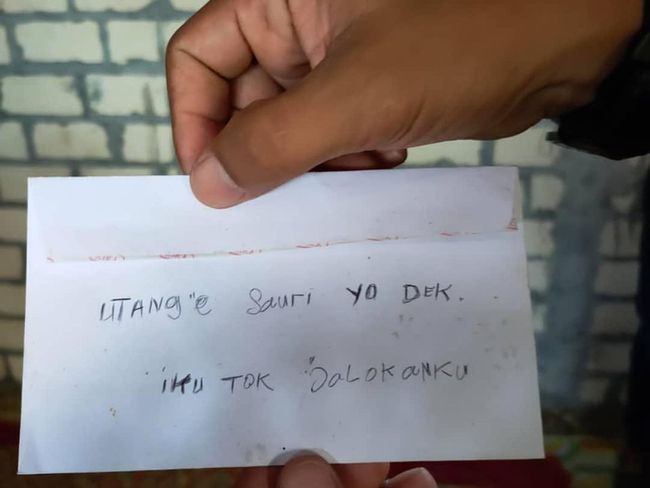 UTANG"e Sauri YO DEK.
iKU TOK JaLOKANKU